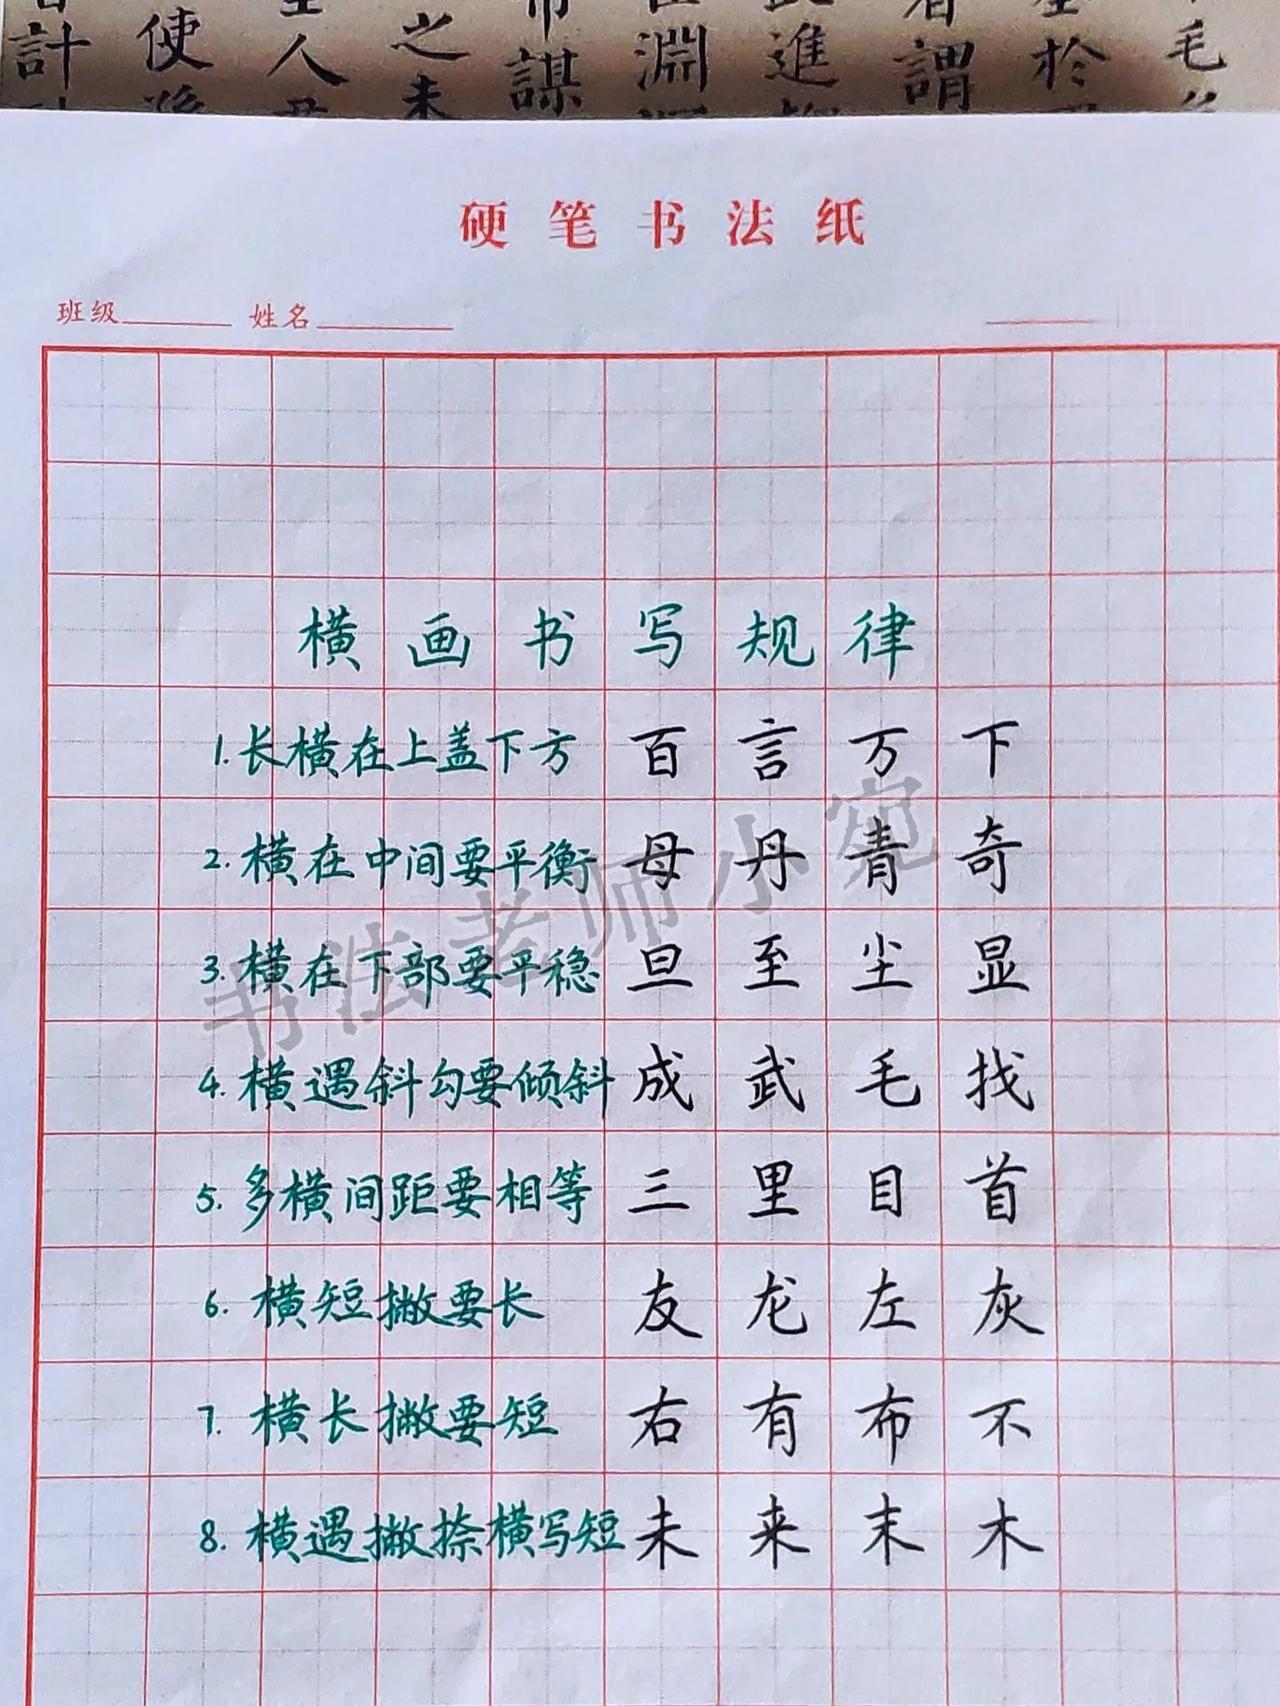 使 人 之 谋 淵 進 謂 於 毛
硬笔书法纸
班级 姓名
横画书写规律
1.长横在上盖下方 百 言 万 下
2.横在中间要平衡 母 丹 青 奇
3.横在下部要平稳 旦 至 尘 显
4.横遇斜勾要倾斜 成 武 毛 找
5.多横间距要相等 三 里 目 首
6.横短撇要长 友 龙 左 灰
7.横长撇要短 右 有 布 不
8.横遇撇捺横写短 未 来 末 木
书法老师小宛